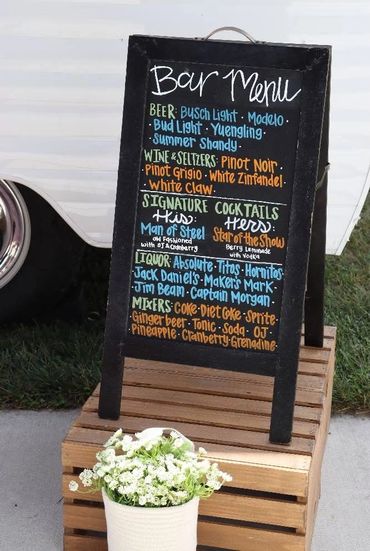 Bar Menu
BEER: Busch Light · Modelo ·
· Bud Light · Yuengling ·
· Summer Shandy ·
WINE & SELTZERS: Pinot Noir ·
Pinot Grigio · White Zinfandel ·
· White Claw ·
SIGNATURE COCKTAILS
His: Hers:
Man of Steel Star of the Show
Old Fashioned Berry Lemonade
with OJ & Cranberry with Vodka
LIQUOR: Absolute · Titos · Hornitos ·
Jack Daniel's · Maker's Mark ·
Jim Beam · Captain Morgan ·
MIXERS: Coke · Diet Coke · Sprite ·
Ginger beer · Tonic · Soda · OJ ·
Pineapple · Cranberry · Grenadine